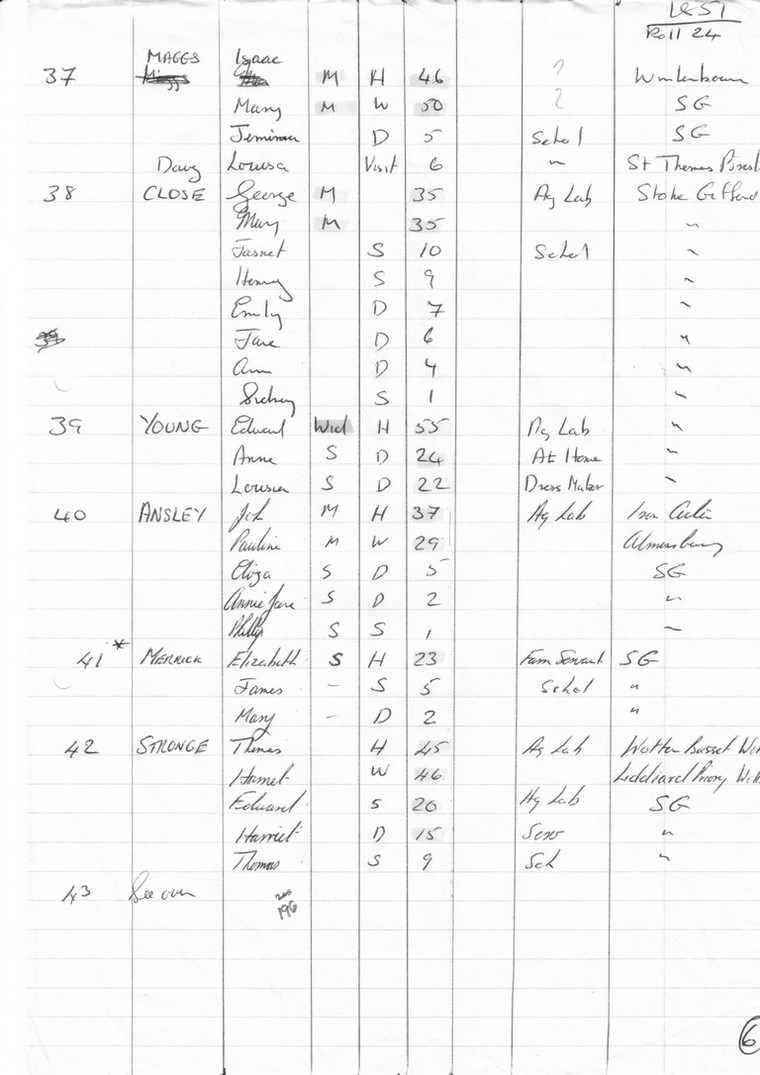 1851
Roll 24
37 MAGGS Isaac M H 46 ? Winterbourn
Mary M W 50 ? SG
Jemima D 5 Schol SG
Davy Louisa Visit 6 " St Thomas
38 CLOSE George M 35 Ag Lab Stoke Gifford
Mary M 35 "
S 10 Schol "
Henry S 9 "
Emily D 7 "
Jane D 6 "
Ann D 4 "
Sidney S 1 "
39 YOUNG Edward Wid H 55 Ag Lab "
Anne S D 24 At Home "
Louisa S D 22 Dress Maker "
40 ANSLEY M H 37 Ag Lab Iron Acton
Pauline M W 29 Almonsbury
Eliza S D 5 SG
Annie Jane S D 2 "
Philip S S 1 "
41 * MERRICK Elizabeth S H 23 Farm Servant SG
James - S 5 Schol "
Mary - D 2 "
42 STRONGE Thomas H 45 Ag Lab Wotton Basset
Harriet W 46 Liddiard
Edward S 20 Ag Lab SG
Harriet D 15 Serv "
Thomas S 9 Sch "
43 See over
196
6